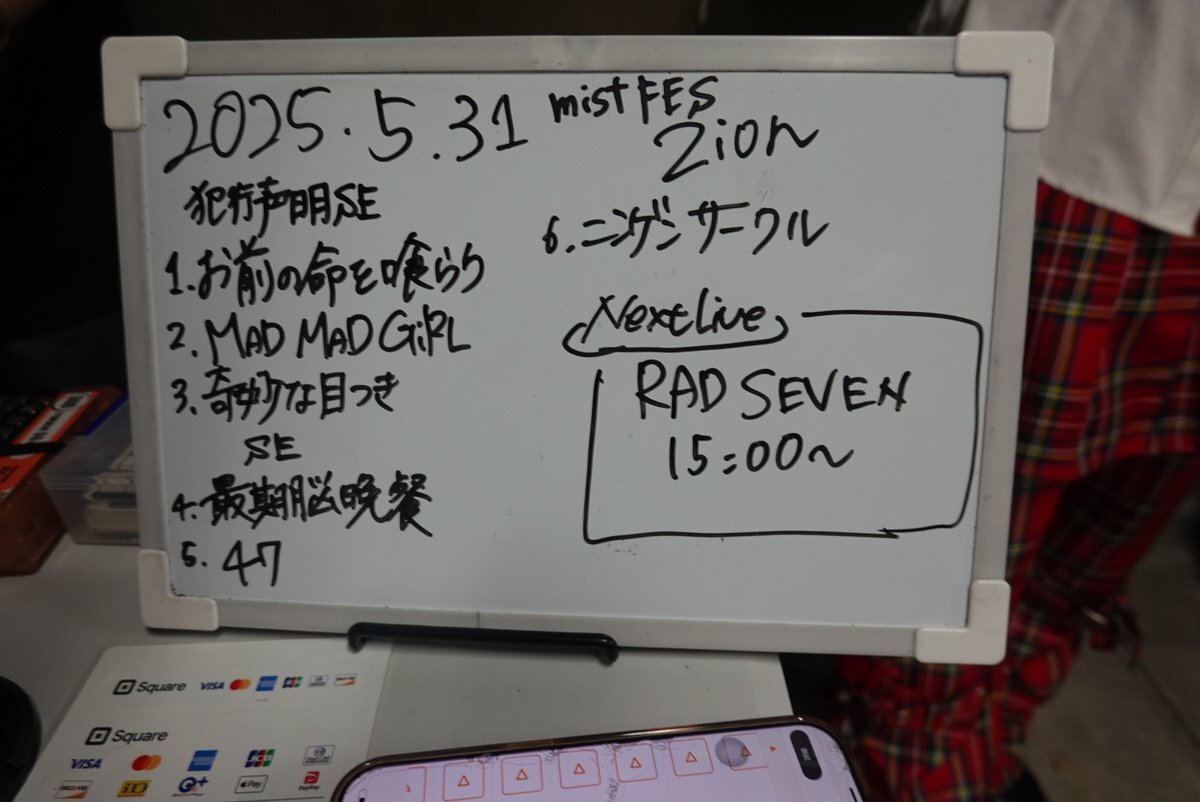 2025.5.31 mist FES
Zion
犯行声明SE
1.お前の命を喰らう
2.MAD MAD GiRL
3.奇妙な目つき
SE
4.最期脳晩餐
5.47
6.ニンゲンサークル
Next Live
RAD SEVEN
15:00~
Square VISA
Square
VISA
DISCOVER iD Pay PayPay